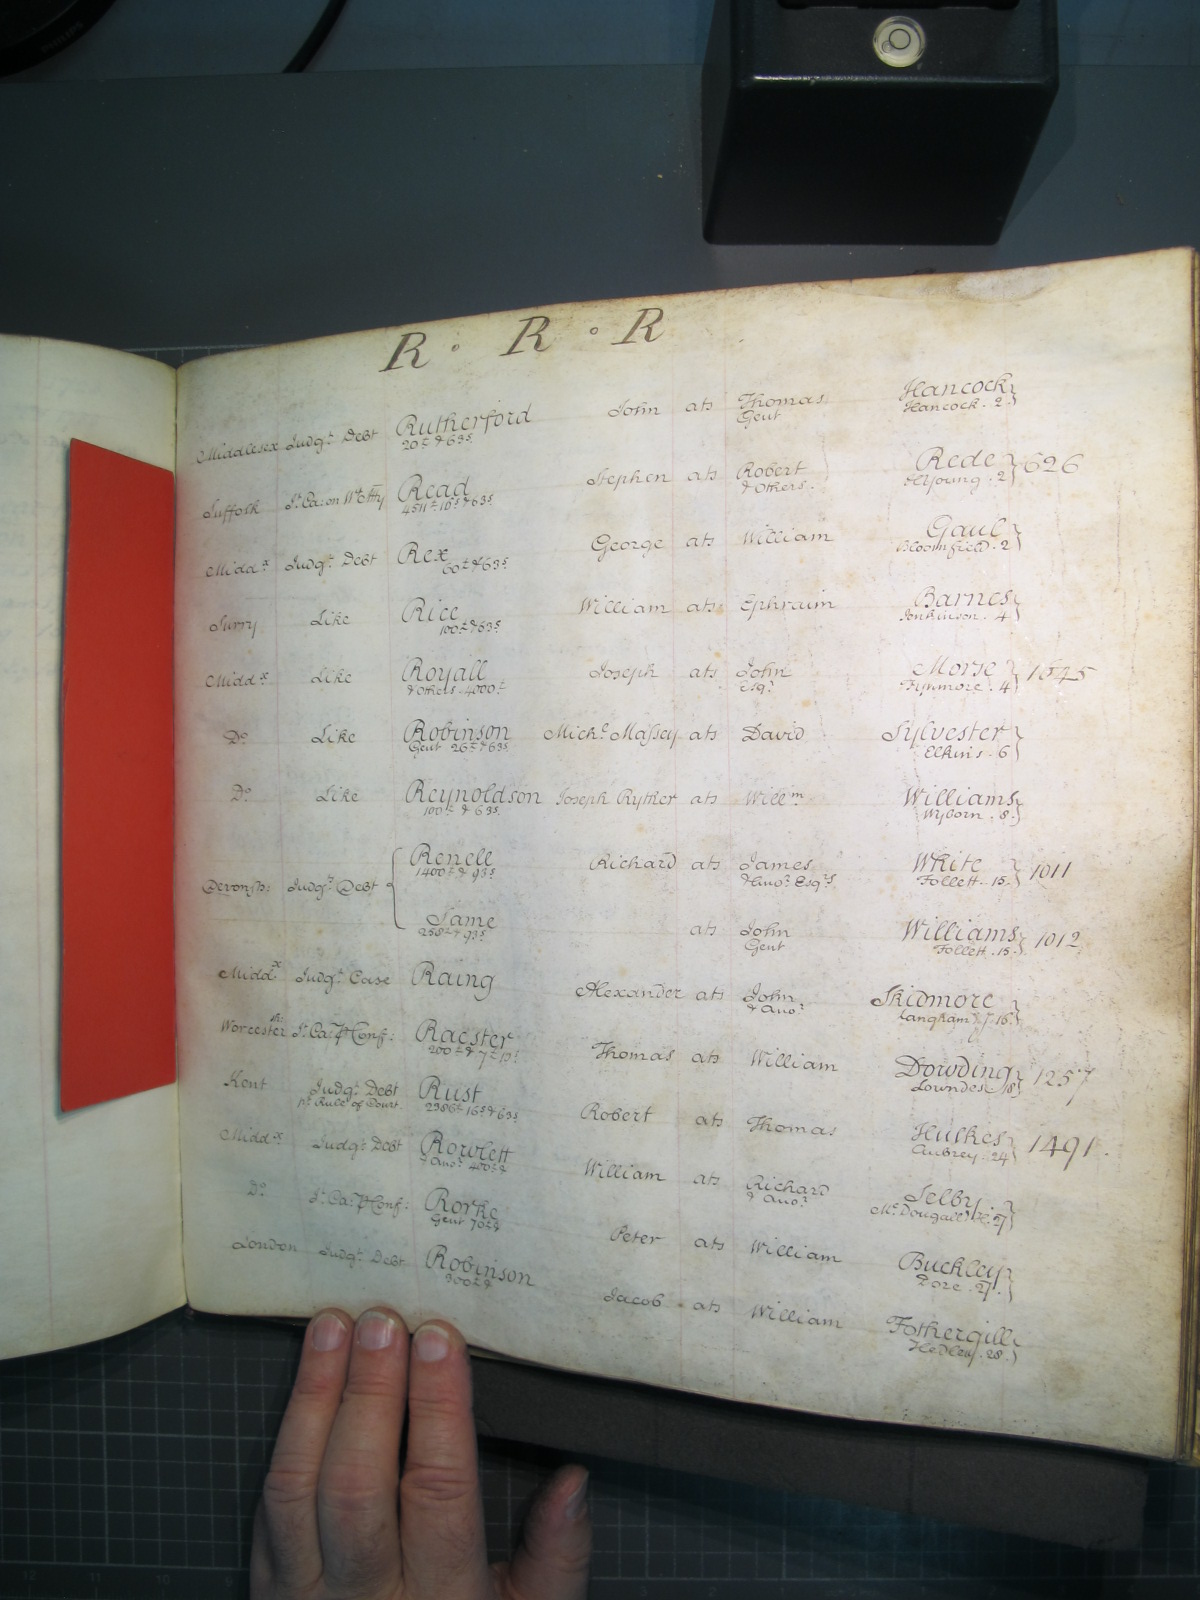 R · R · R
Middlesex Judgt. Debt Rutherford John ats Thomas Hancock
20£ & 63s Gent Hancock . 2
Suffolk Read Stephen ats Robert Rede 626
4511£ 16s & 63s & Others . 2
Middx. Judgt. Debt Rex George ats William Gaul
60£ & 63s Bloomfield . 2
Surry Like Rice William ats Ephraim Barnes
100£ & 63s Jenkinson . 4
Middx. Like Royall Joseph ats John Morse 1645
& Others 4000£ Esqr. Fynmore . 4
Do. Like Robinson Michl. Massey ats David Sylvester
Gent 26£ & 63s Elkins . 6
Do. Like Reynoldson Joseph Ryther ats Willm. Williams
100£ & 63s Wyborn . 8
Devonsh: Judgt. Debt Renell Richard ats James White 1011
1400£ & 93s & Anor. Esqrs Follett . 15
Same ats John Williams 1012
258£ & 93s Gent Follett . 15
Middx. Judgt. Case Raing Alexander ats John Skidmore
& Anor. Langham . 16
Worcestersh: Jt. Ca: p Conf: Racster Thomas ats William Dowding 1257
Lowndes . 18
Kent Judgt. Debt Rust Robert ats Thomas Hulkes 1491
pr. Rule of Court 2386£ 16s & 63s Aubrey . 24
Middx. Judgt. Debt Rowlett William ats Richard Selby
& Anor. 400£ & & Anor. McDougall
Do. Jt. Ca: p Conf: Rorke Peter ats William Buckley
Gent 70£ & Dore . 27
London Judgt. Debt Robinson Jacob ats William Fothergill
300£ & Hedley . 28
12 11 10 9